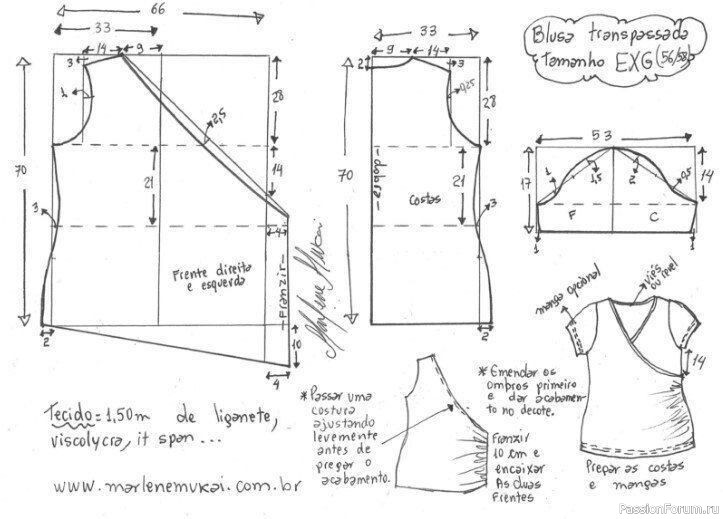 66
33
14
9
3
1
2,5
28
14
70
21
3
4
Frente direita
e esquerda
Franzir
2
10
4
Marlene Mukai
33
9
14
2
3
0,25
28
14
70
dobra
21
Costas
3
2
Blusa transpassada
tamanho EXG (56/58)
53
17
1
1,5
2
0,5
14
F
C
1
1
manga opcional
viés
ou revel
14
Tecido = 1,50m de liganete,
viscolycra, it span...
www.marlenemukai.com.br
*Passar uma
costura
ajustando
levemente
antes de
pregar o
acabamento.
*Emendar os
ombros primeiro
e dar acabamen-
to no decote.
Franzir
10 cm e
encaixar
As duas
frentes
Pregar as costas
e mangas
PassionForum.ru